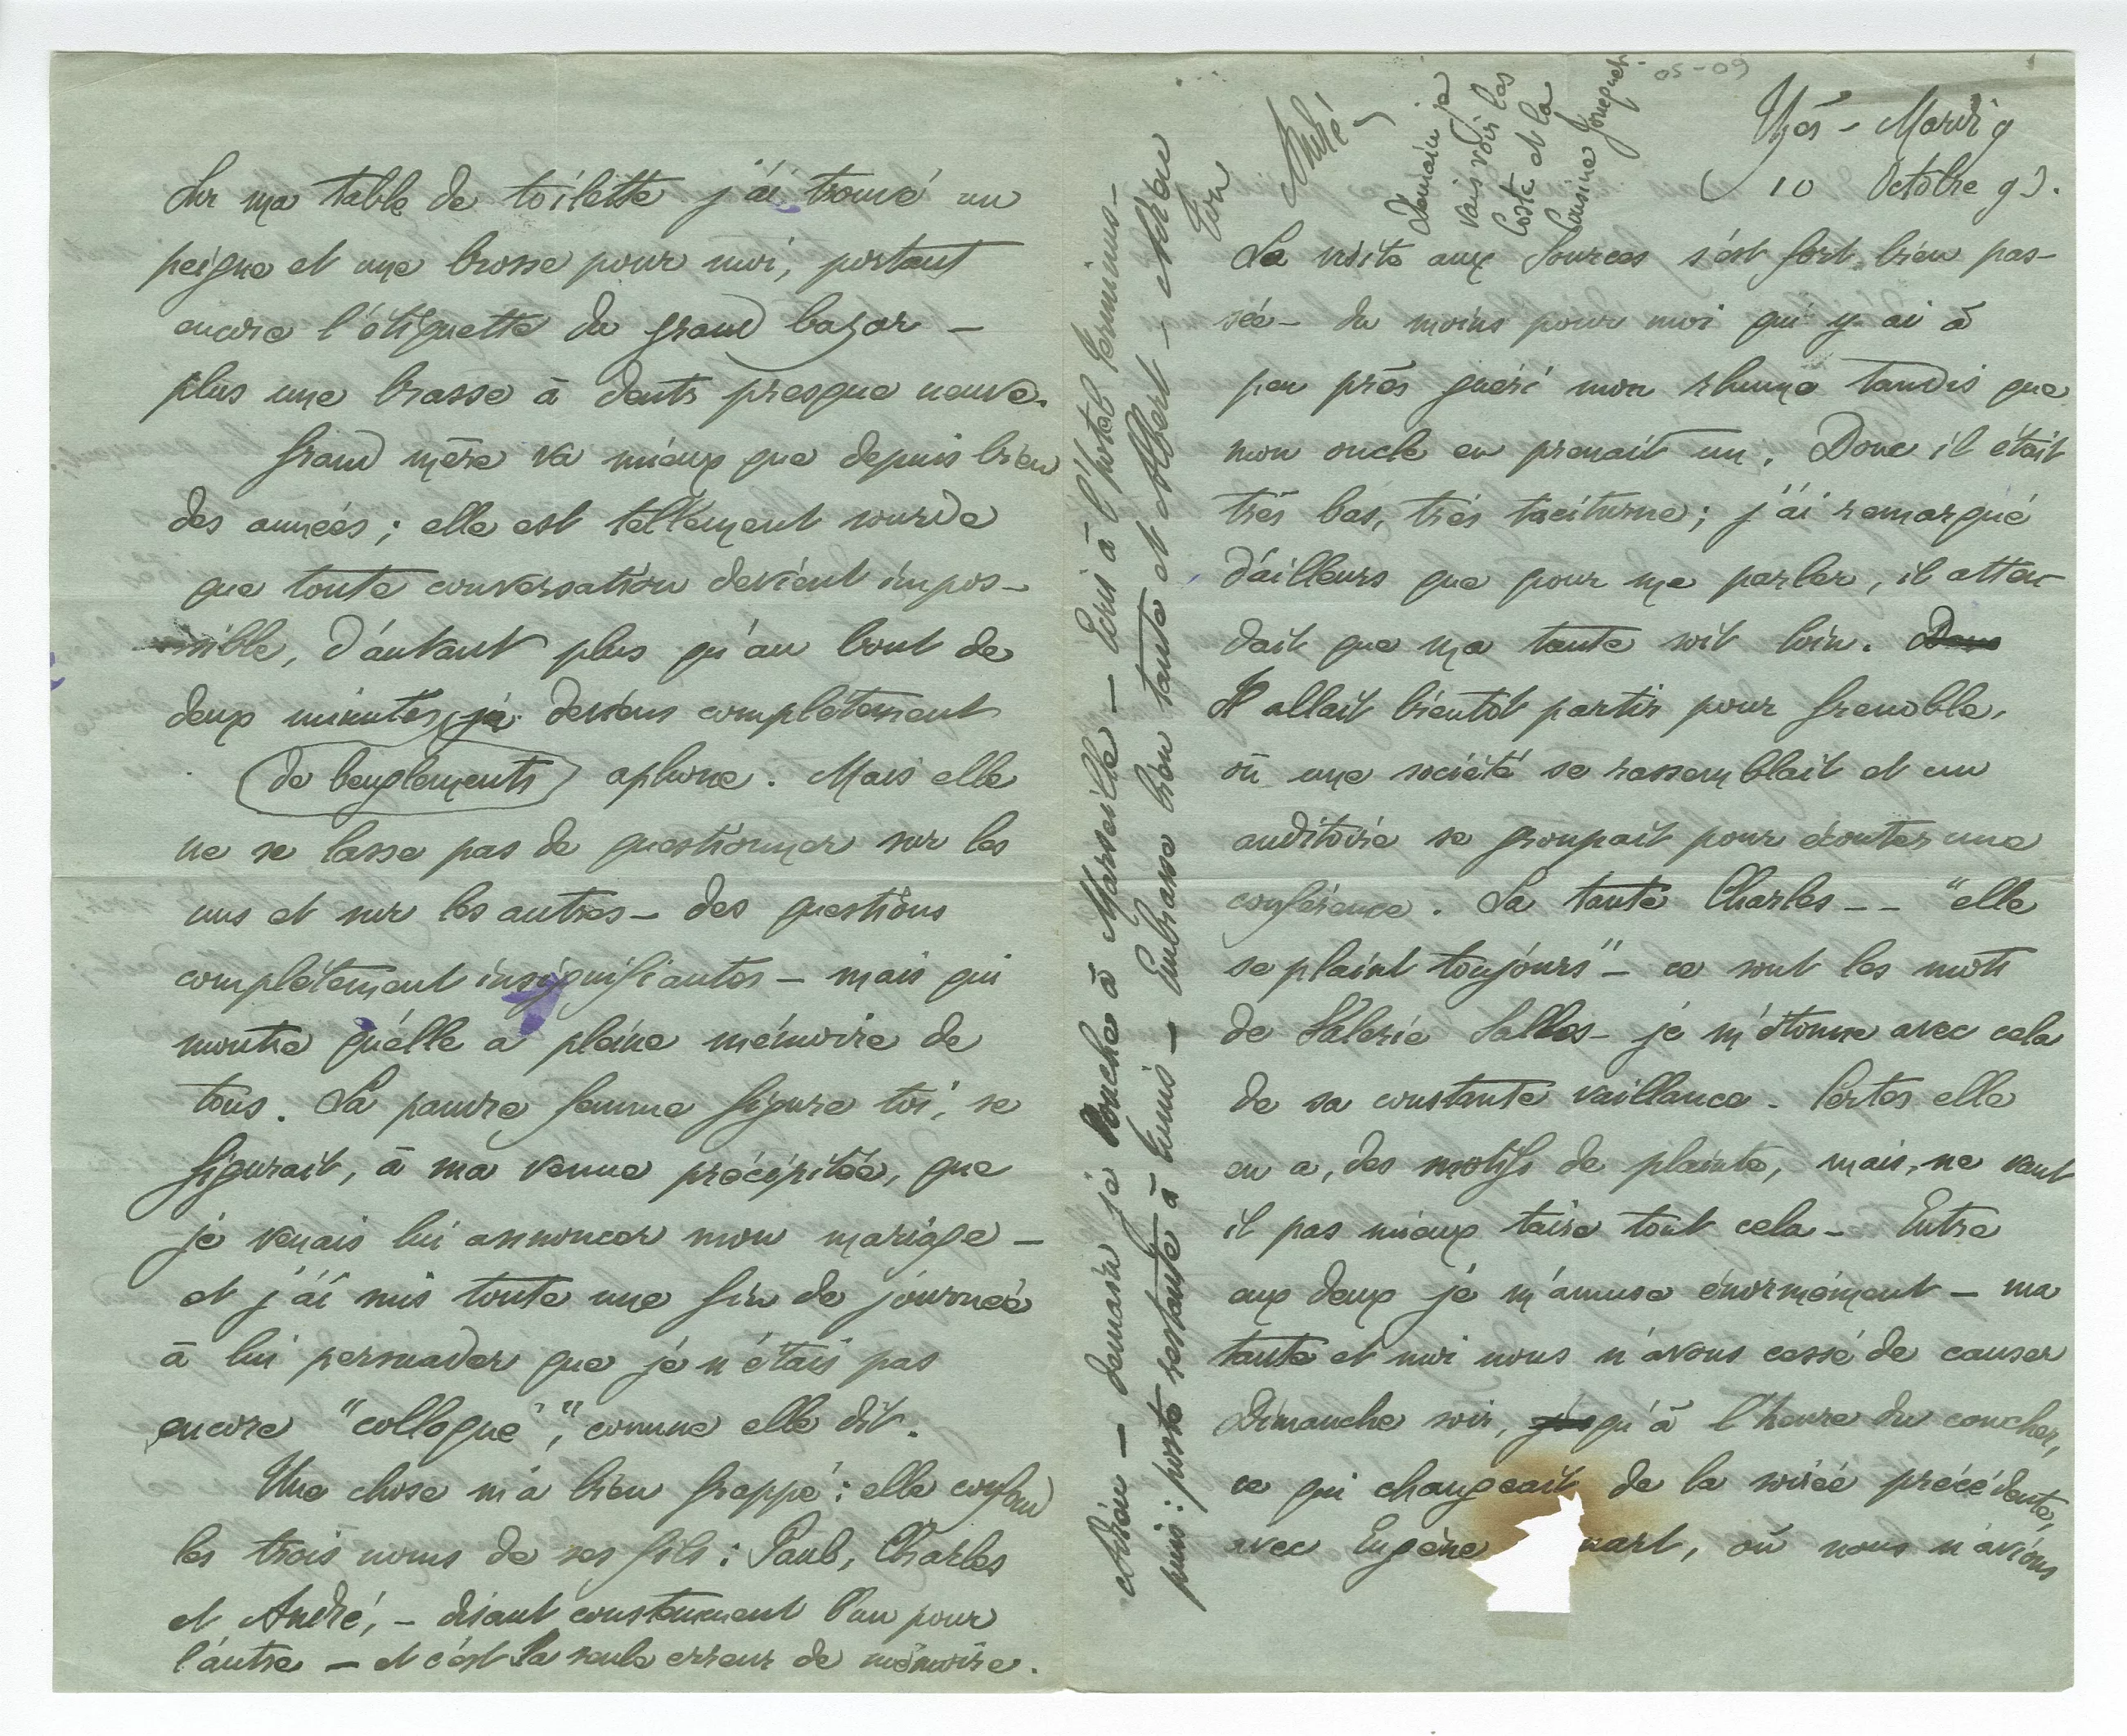 05-09
Uzès – Mardi 9
( 10 Octobre 93.
La visite aux Sources s'est fort bien pas-
sée – du moins pour moi qui y ai à
peu près guéri mon rhume tandis que
mon oncle en prenait un. Donc il était
très bas, très taciturne ; j'ai remarqué
d'ailleurs que pour me parler, il atten-
dait que ma tante soit loin.
Il allait bientôt partir pour Grenoble,
où une société se rassemblait et un
auditoire se groupait pour écouter une
conférence. La tante Charles -- "elle
se plaint toujours" – ce sont les mots
de Valérie Salles – je m'étonne avec cela
de sa constante vaillance. Certes elle
en a, des motifs de plainte, mais, ne vaut
il pas mieux taire tout cela – Entre
eux deux je m'amuse énormément – ma
tante et moi nous n'avons cessé de causer
Dimanche soir, jusqu'à l'heure du coucher,
ce qui changeait de la soirée précédente,
avec Eugène uart, où nous n'avions
Sur ma table de toilette j'ai trouvé un
peigne et une brosse pour moi, portant
encore l'étiquette du grand bazar –
plus une brosse à dents presque neuve.
Grand mère va mieux que depuis bien
des années ; elle est tellement sourde
que toute conversation devient impos-
sible, d'autant plus qu'au bout de
deux minutes, je deviens complètement
(de beuglements) aphone. Mais elle
ne se lasse pas de questionner sur les
uns et sur les autres – des questions
complètement insignifiantes – mais qui
montre qu'elle a pleine mémoire de
tous. La pauvre femme figure toi, se
figurait, à ma venue précipitée, que
je venais lui annoncer mon mariage –
et j'ai mis toute une fin de journée
à lui persuader que je n'étais pas
encore "collogué", comme elle dit.
Une chose m'a bien frappé : elle confond
les trois noms de ses fils : Paul, Charles
et André, – disant constamment l'un pour
l'autre – et c'est la seule erreur de mémoire.
Adieu – demain je couche à Marseille – Ecris à l'hotel Terminus –
puis : poste restante à Tunis – Embrasse bien tante et Albert – Adieu
Ton
André –
Demain je
vais voir les
Coste et la
Cousine